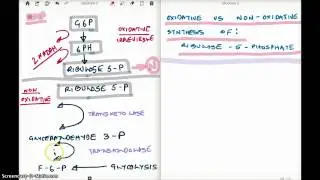 G6P
OXIDATIVE
IRREVERSIBLE
2 NADPH
6PH
RIBULOSE 5-P
NON
OXIDATIVE
RIBULOSE 5-P
TRANSKETOLASE
GLYCERALDEHYDE 3-P
TRANSALDOLASE
F-6-P
GLYCOLYSIS
OXIDATIVE VS NON-OXIDATIVE
SYNTHESIS OF:
RIBULOSE-5-PHOSPHATE